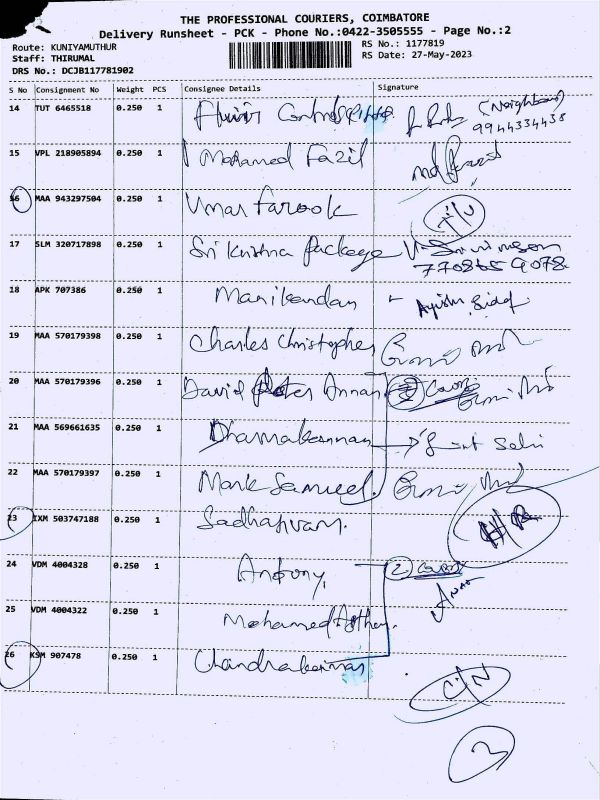 THE PROFESSIONAL COURIERS, COIMBATORE
Delivery Runsheet - PCK - Phone No.:0422-3505555 - Page No.:2
Route: KUNIYAMUTHUR
Staff: THIRUMAL
DRS No.: DCJB117781902
RS No.: 1177819
RS Date: 27-May-2023
S No Consignment No Weight PCS Consignee Details Signature
14 TUT 6465518 0.250 1 (Neighbour)
9944334438
15 VPL 218905894 0.250 1 Mohamed Fazil
16 MAA 943297504 0.250 1 Umar Farook
17 SLM 320717898 0.250 1 Sri Krishna Package
18 APK 707386 0.250 1 Manikandan
19 MAA 570179398 0.250 1 Charles Christopher
20 MAA 570179396 0.250 1 David Annan
21 MAA 569661635 0.250 1 Dharmakannan
22 MAA 570179397 0.250 1 Mark Samuel
23 IXM 503747188 0.250 1
24 VDM 4004328 0.250 1 Antony 2
25 VDM 4004322 0.250 1 Mohamed
26 KSM 907478 0.250 1
2